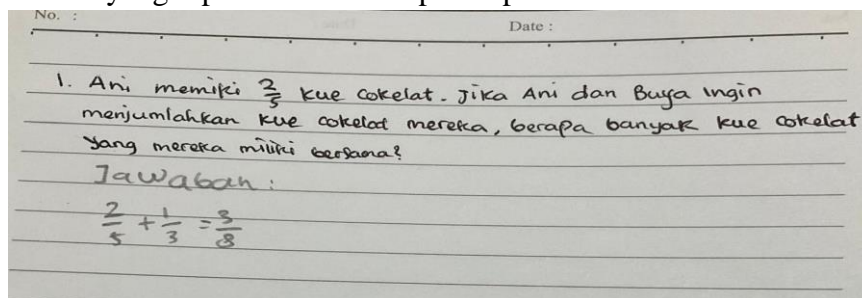 No. :
Date :
1. Ani memiki 2/5 kue cokelat. Jika Ani dan Buya ingin
menjumlahkan kue cokelat mereka, berapa banyak kue cokelat
yang mereka miliki bersama?
Jawaban :
2/5 + 1/3 = 3/8